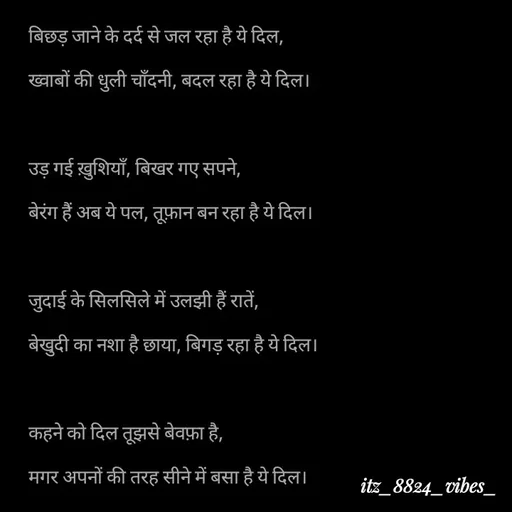 बिछड़ जाने के दर्द से जल रहा है ये दिल,
ख्वाबों की धुली चाँदनी, बदल रहा है ये दिल।
उड़ गई ख़ुशियाँ, बिखर गए सपने,
बेरंग हैं अब ये पल, तूफ़ान बन रहा है ये दिल।
जुदाई के सिलसिले में उलझी हैं रातें,
बेखुदी का नशा है छाया, बिगड़ रहा है ये दिल।
कहने को दिल तूझसे बेवफ़ा है,
मगर अपनों की तरह सीने में बसा है ये दिल।
itz_8824_vibes_